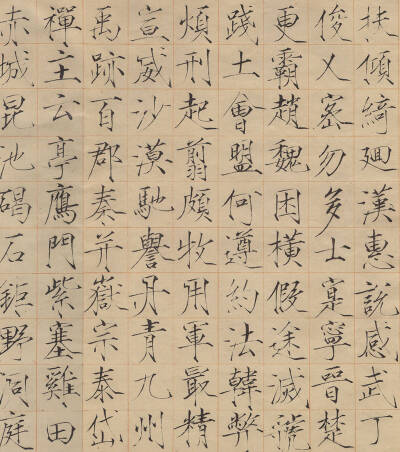 扶傾綺廻漢惠說感武丁
俊乂密勿多士寔寧晉楚
更霸趙魏困橫假途滅虢
踐土會盟何遵約法韓弊
煩刑起翦頗牧用軍最精
宣威沙漠馳譽丹青九州
禹跡百郡秦并嶽宗泰岱
禪主云亭鴈門紫塞雞田
赤城昆池碣石鉅野洞庭